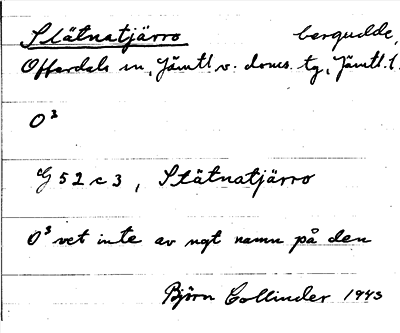 Slätnatjärro bergudde,
Offerdals sn, Jämtl v. doms. tg, Jämtl. l.
O³
G 52 c 3, Slätnatjärro
O³ vet inte av ngt namn på den
Björn Collinder 1943